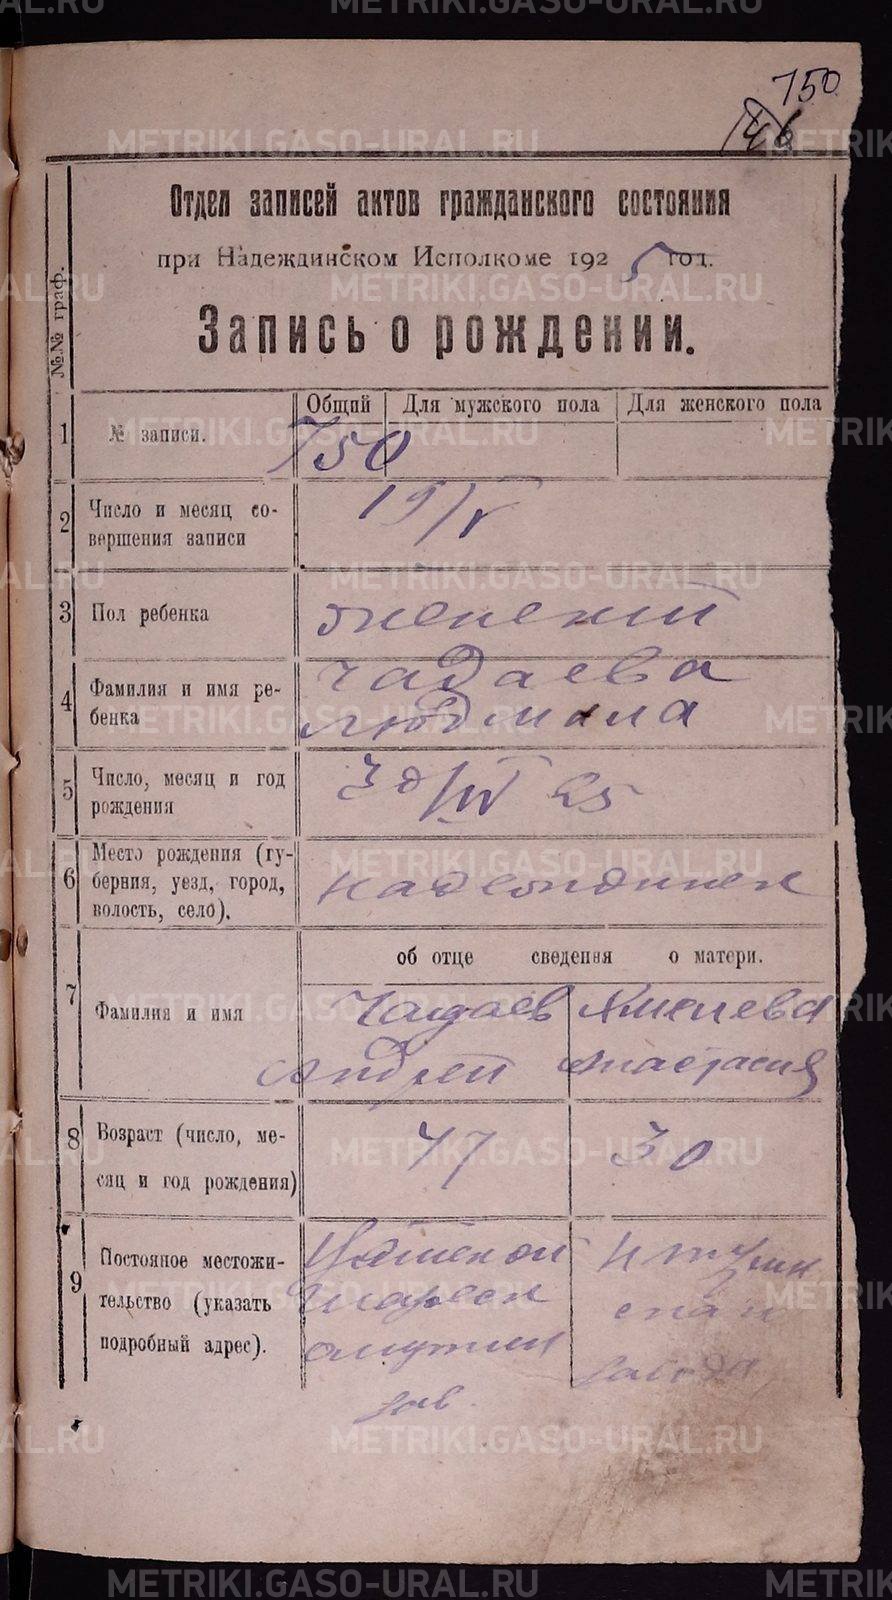 METRIKI.GASO-URAL.RU
750
146
Отдел записей актов гражданского состояния
при Надеждинском Исполкоме 1925 год.
Запись о рождении.
№№ граф.
Общий Для мужского пола Для женского пола
1 № записи. 750
2 Число и месяц со-
вершения записи
19/V
3 Пол ребенка женский
4 Фамилия и имя ре-
бенка
Чадаева
Людмила
5 Число, месяц и год
рождения
30/IV 25
6 Место рождения (гу-
берния, уезд, город,
волость, село).
Надеждинск
об отце сведения о матери.
7 Фамилия и имя
Чадаев
Андрей
Хмелева
Анастасия
8 Возраст (число, ме-
сяц и год рождения)
47 30
9 Постояное местожи-
тельство (указать
подробный адрес).
омутнин
зав.
завода